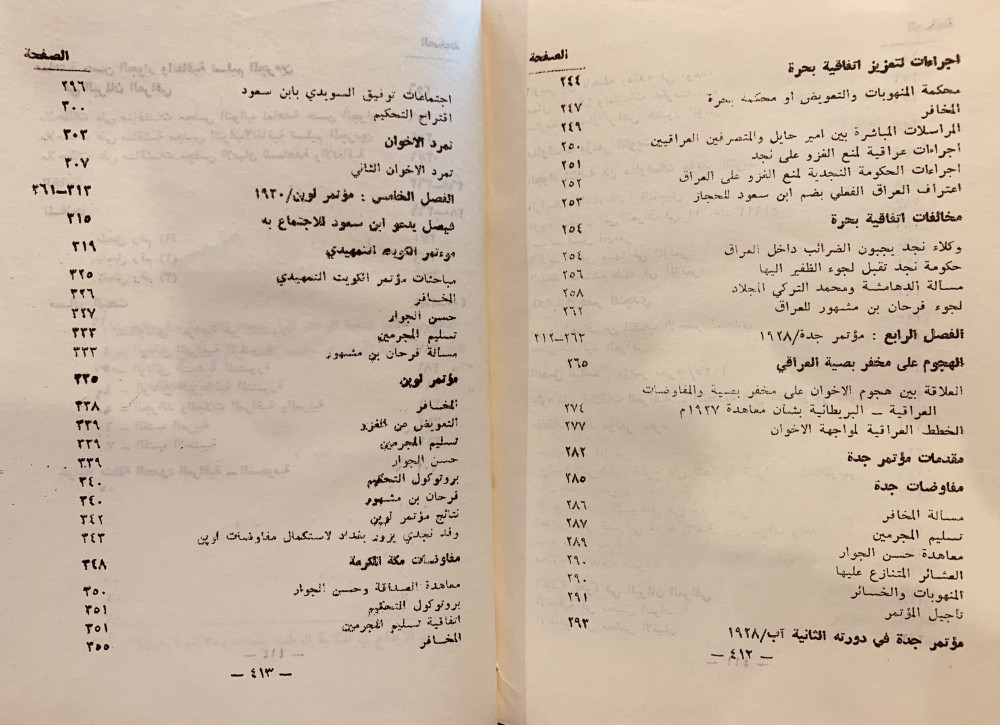 الصفحة
اجراءات لتعزيز اتفاقية بحرة ٢٤٤
محكمة المنهوبات والتعويض او محكمة بحرة
المخافر ٢٤٧
المراسلات المباشرة بين امير حايل والمتصرفين العراقيين ٢٤٩
اجراءات عراقية لمنع الغزو على نجد ٢٥٠
اجراءات الحكومة النجدية لمنع الغزو على العراق ٢٥١
اعتراف العراق الفعلي بضم ابن سعود للحجاز ٢٥٢
٢٥٣
مخالفات اتفاقية بحرة ٢٥٤
وكلاء نجد يجبون الضرائب داخل العراق ٢٥٤
حكومة نجد تقبل لجوء الظفير اليها ٢٥٦
مسألة الدهامشة ومحمد التركي المجلاد ٢٥٨
لجوء فرحان بن مشهور للعراق ٢٦٢
الفصل الرابع : مؤتمر جدة/١٩٢٨ ٢٦٣–٣١٢
الهجوم على مخفر بصية العراقي ٢٦٥
العلاقة بين هجوم الاخوان على مخفر بصية والمفاوضات
العراقية – البريطانية بشأن معاهدة ١٩٢٧م ٢٧٤
الخطط العراقية لمواجهة الاخوان ٢٧٧
مقدمات مؤتمر جدة ٢٨٢
مفاوضات جدة ٢٨٥
مسألة المخافر ٢٨٦
تسليم المجرمين ٢٨٧
معاهدة حسن الجوار ٢٨٩
العشائر المتنازع عليها ٢٩٠
المنهوبات والخسائر ٢٩٠
تأجيل المؤتمر ٢٩١
مؤتمر جدة في دورته الثانية آب/١٩٢٨ ٢٩٣
– ٤١٢ –
الصفحة
اجتماعات توفيق السويدي بابن سعود ٢٩٦
اقتراح التحكيم ٣٠٠
تمرد الاخوان ٣٠٣
تمرد الاخوان الثاني ٣٠٧
الفصل الخامس : مؤتمر لوبن/١٩٣٠ ٣١٣–٣٦١
فيصل يدعو ابن سعود للاجتماع به ٣١٥
موءتمر الكويت التمهيدي ٣١٩
مباحثات مؤتمر الكويت التمهيدي ٣٢٥
المخافر ٣٢٦
حسن الجوار ٣٤٧
تسليم المجرمين ٣٣٣
مسألة فرحان بن مشهور ٣٣٣
مؤتمر لوبن ٣٣٥
المخافر ٣٣٨
التعويض عن الغزو ٣٣٩
تسليم المجرمين ٣٣٩
حسن الجوار ٣٣٩
بروتوكول التحكيم ٣٤٠
فرحان بن مشهور ٣٤٠
نتائج مؤتمر لوبن ٣٤٢
وفد نجدي يزور بغداد لاستكمال مفاوضات لوبن ٣٤٣
مفاوضات مكة المكرمة ٣٤٨
معاهدة الصداقة وحسن الجوار ٣٥٠
بروتوكول التحكيم ٣٥١
اتفاقية تسليم المجرمين ٣٥١
المخافر ٣٥٥
– ٤١٣ –